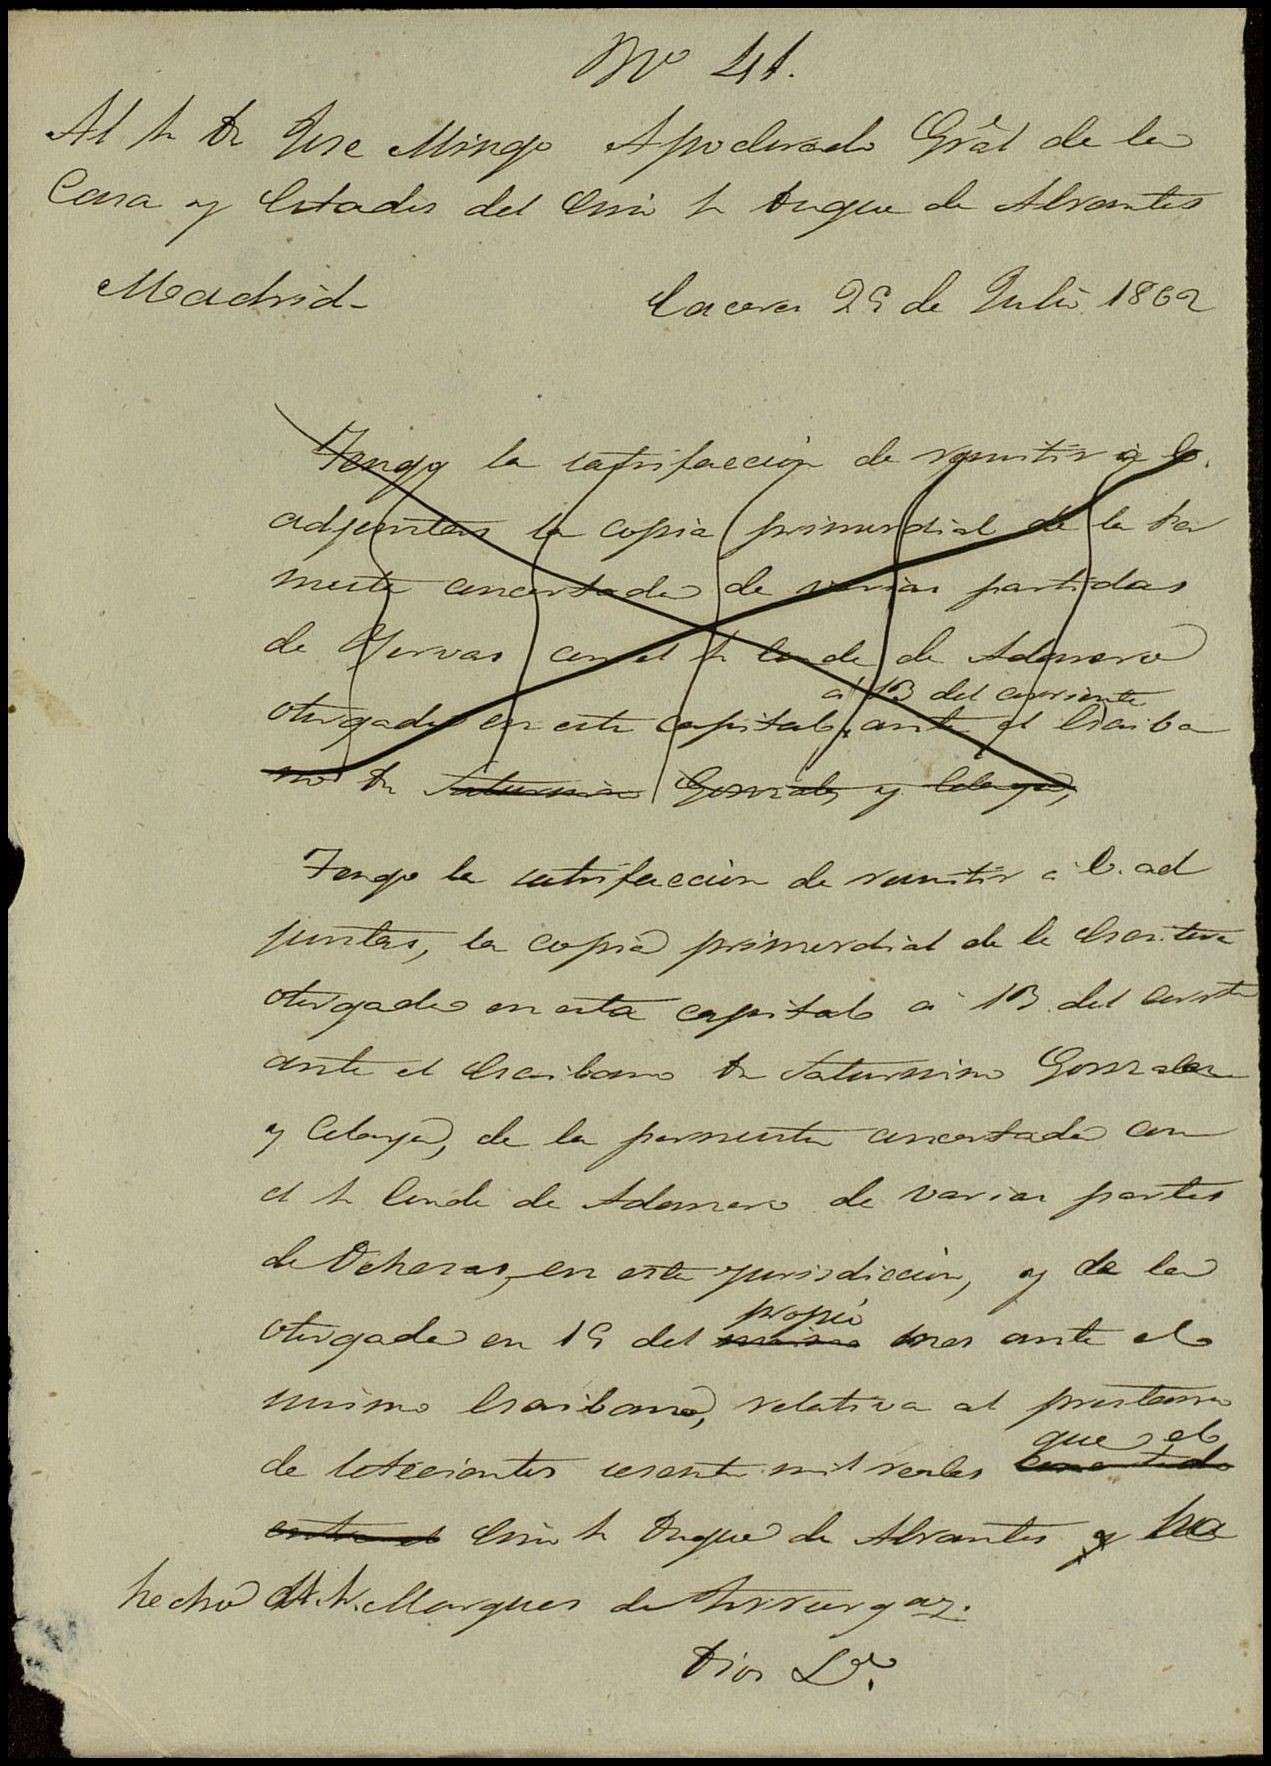 Nº 41.
Al Sr Dn Jose Mingo Apoderado Gral de la
Casa y Estados del Exmo Sr Duque de Abrantes
Madrid-
Caceres 29 de Julio 1862
Tengo la satisfaccion de remitir a V.
adjuntas la copia primordial de la per
muta concertada de varias partidas
de Yervas con el Sr Conde de Adanero
á 13 del corriente
otorgada en esta capital, ante el Escriba
no Dn Saturnino Gonzalez y Celaya,
Tengo la satisfaccion de remitir a V. ad
juntas, la copia primordial de la Escritura
otorgada en esta capital a 13 del corrte
ante el Escribano Dn Saturnino Gonzalez
y Celaya, de la permuta concertada con
el Sr Conde de Adanero de varias partes
de Dehesas, en esta jurisdiccion, y de la
propio
otorgada en 19 del mismo mes ante el
mismo Escribano, relativa al prestamo
que el
de setecientos sesenta mil reales concertado
entre el Exmo Sr Duque de Abrantes y ha
hecho al Sr. Marques de Torreorgaz.
Dios Gue.